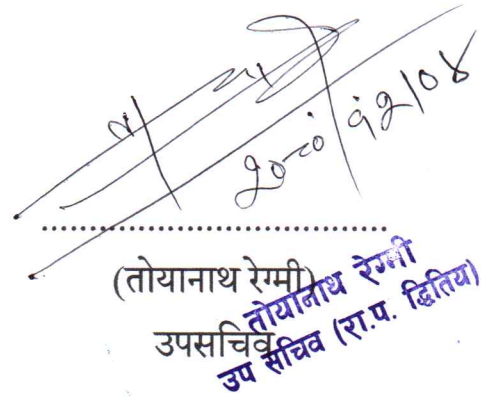 २०८०/१२/०४
(तोयानाथ रेग्मी)
उपसचिव
तोयानाथ रेग्मी
उप सचिव (रा.प. द्वितिय)